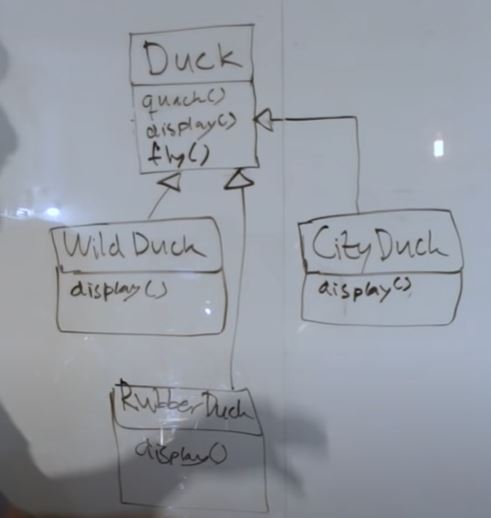 Duck
quack()
display()
fly()
Wild Duck
display()
CityDuck
display()
RubberDuck
display()